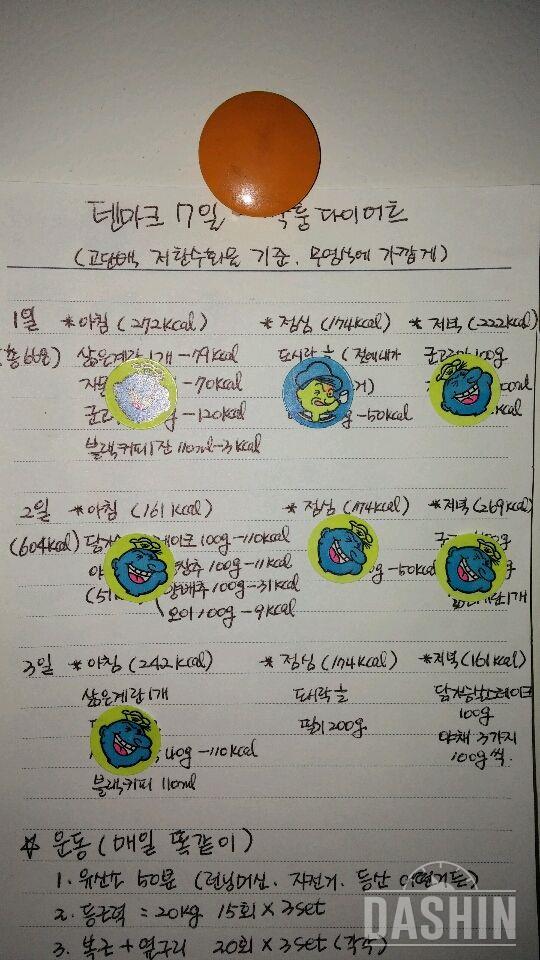 덴마크 7일 다이어트
(고단백, 저탄수화물 기준. 무염식에 가깝게)
1일 *아침 (272kcal) *점심 (174kcal) *저녁 (222kcal)
삶은계란 1개 -79kcal 도시락 (전에내가 100g
-70kcal
-120kcal -50kcal kcal
블랙커피 1잔 110ml -3kcal
2일 *아침 (161kcal) *점심 (174kcal) *저녁 (269kcal)
(604kcal) 100g -110kcal 100g
상추 100g -11kcal -50kcal
양배추 100g -31kcal 1개
오이 100g -9kcal
3일 *아침 (242kcal) *점심 (174kcal) *저녁 (161kcal)
삶은계란 1개 도시락 닭가슴살스테이크
딸기 200g 100g
40g -110kcal 야채 3가지
블랙커피 110ml 100g씩.
☆ 운동 (매일 똑같이)
1. 유산소 50분 (런닝머신. 자전거. 등산
2. 등근력 = 20kg 15회 × 3set
3. 복근 + 옆구리 20회 × 3set (각각)
DASHIN